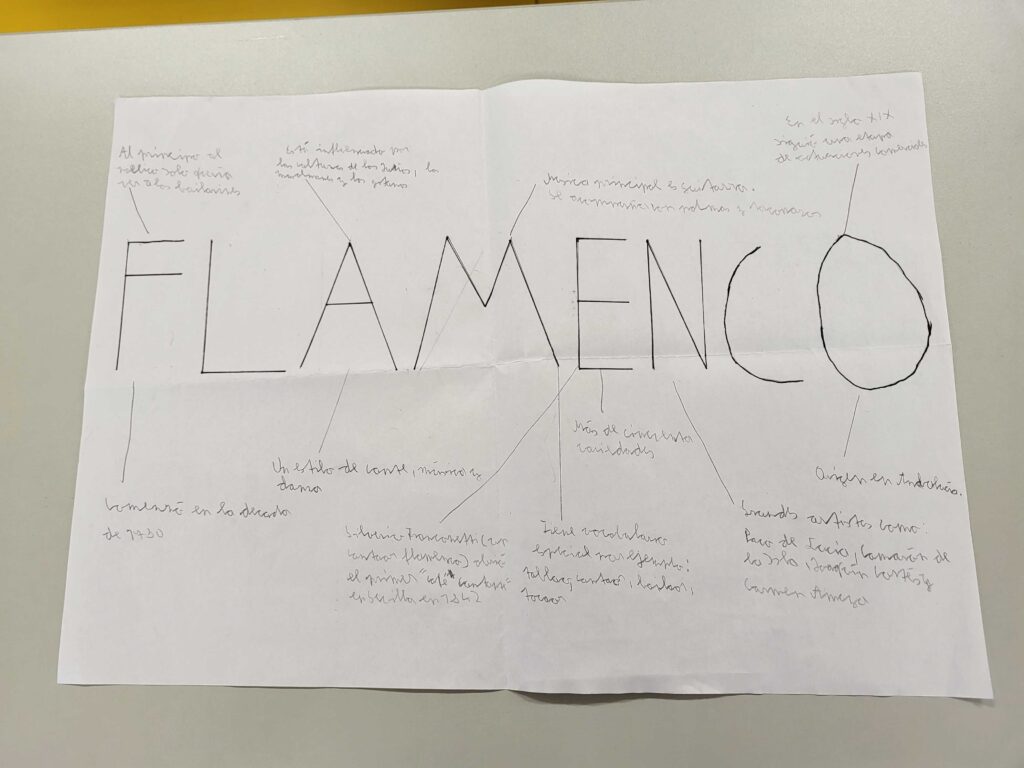 Al principio el
público solo quería
ver a los bailaores
Está influenciado por
las culturas de los Judíos, los
musulmanes y los gitanos
Música principal es guitarra.
Se acompaña con palmas y
En el siglo XIX
siguió una etapa
de comerciales
FLAMENCO
Comenzó en la decada
de 1780
Un estilo de cante, música y
danza
Silverio Franconetti (un
cantaor flamenco) abrió
el primer "café cantante"
en Sevilla en 1842
Tiene vocabulario
especial por ejemplo:
cantaor, bailaor,
tocaor
Más de cincuenta
variedades
Grandes artistas como:
Paco de Lucía, Camarón de
la Isla, Joaquín Cortés y
Carmen Amaya
Origen en Andalucía.